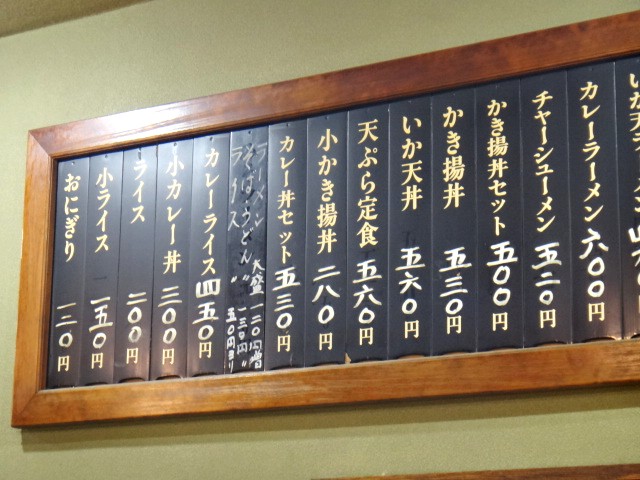 いか天
カレーラーメン 六〇〇円
チャーシューメン 五二〇円
かき揚丼セット 五〇〇円
かき揚丼 五三〇円
いか天丼 五六〇円
天ぷら定食 五六〇円
小かき揚丼 二八〇円
カレー丼セット 五三〇円
ラーメン 大盛 一二〇円増
そば・うどん 〃 一三〇円〃
ライス 〃 五〇円ヨリ
カレーライス 四五〇円
小カレー丼 三〇〇円
ライス 二〇〇円
小ライス 一五〇円
おにぎり 一三〇円